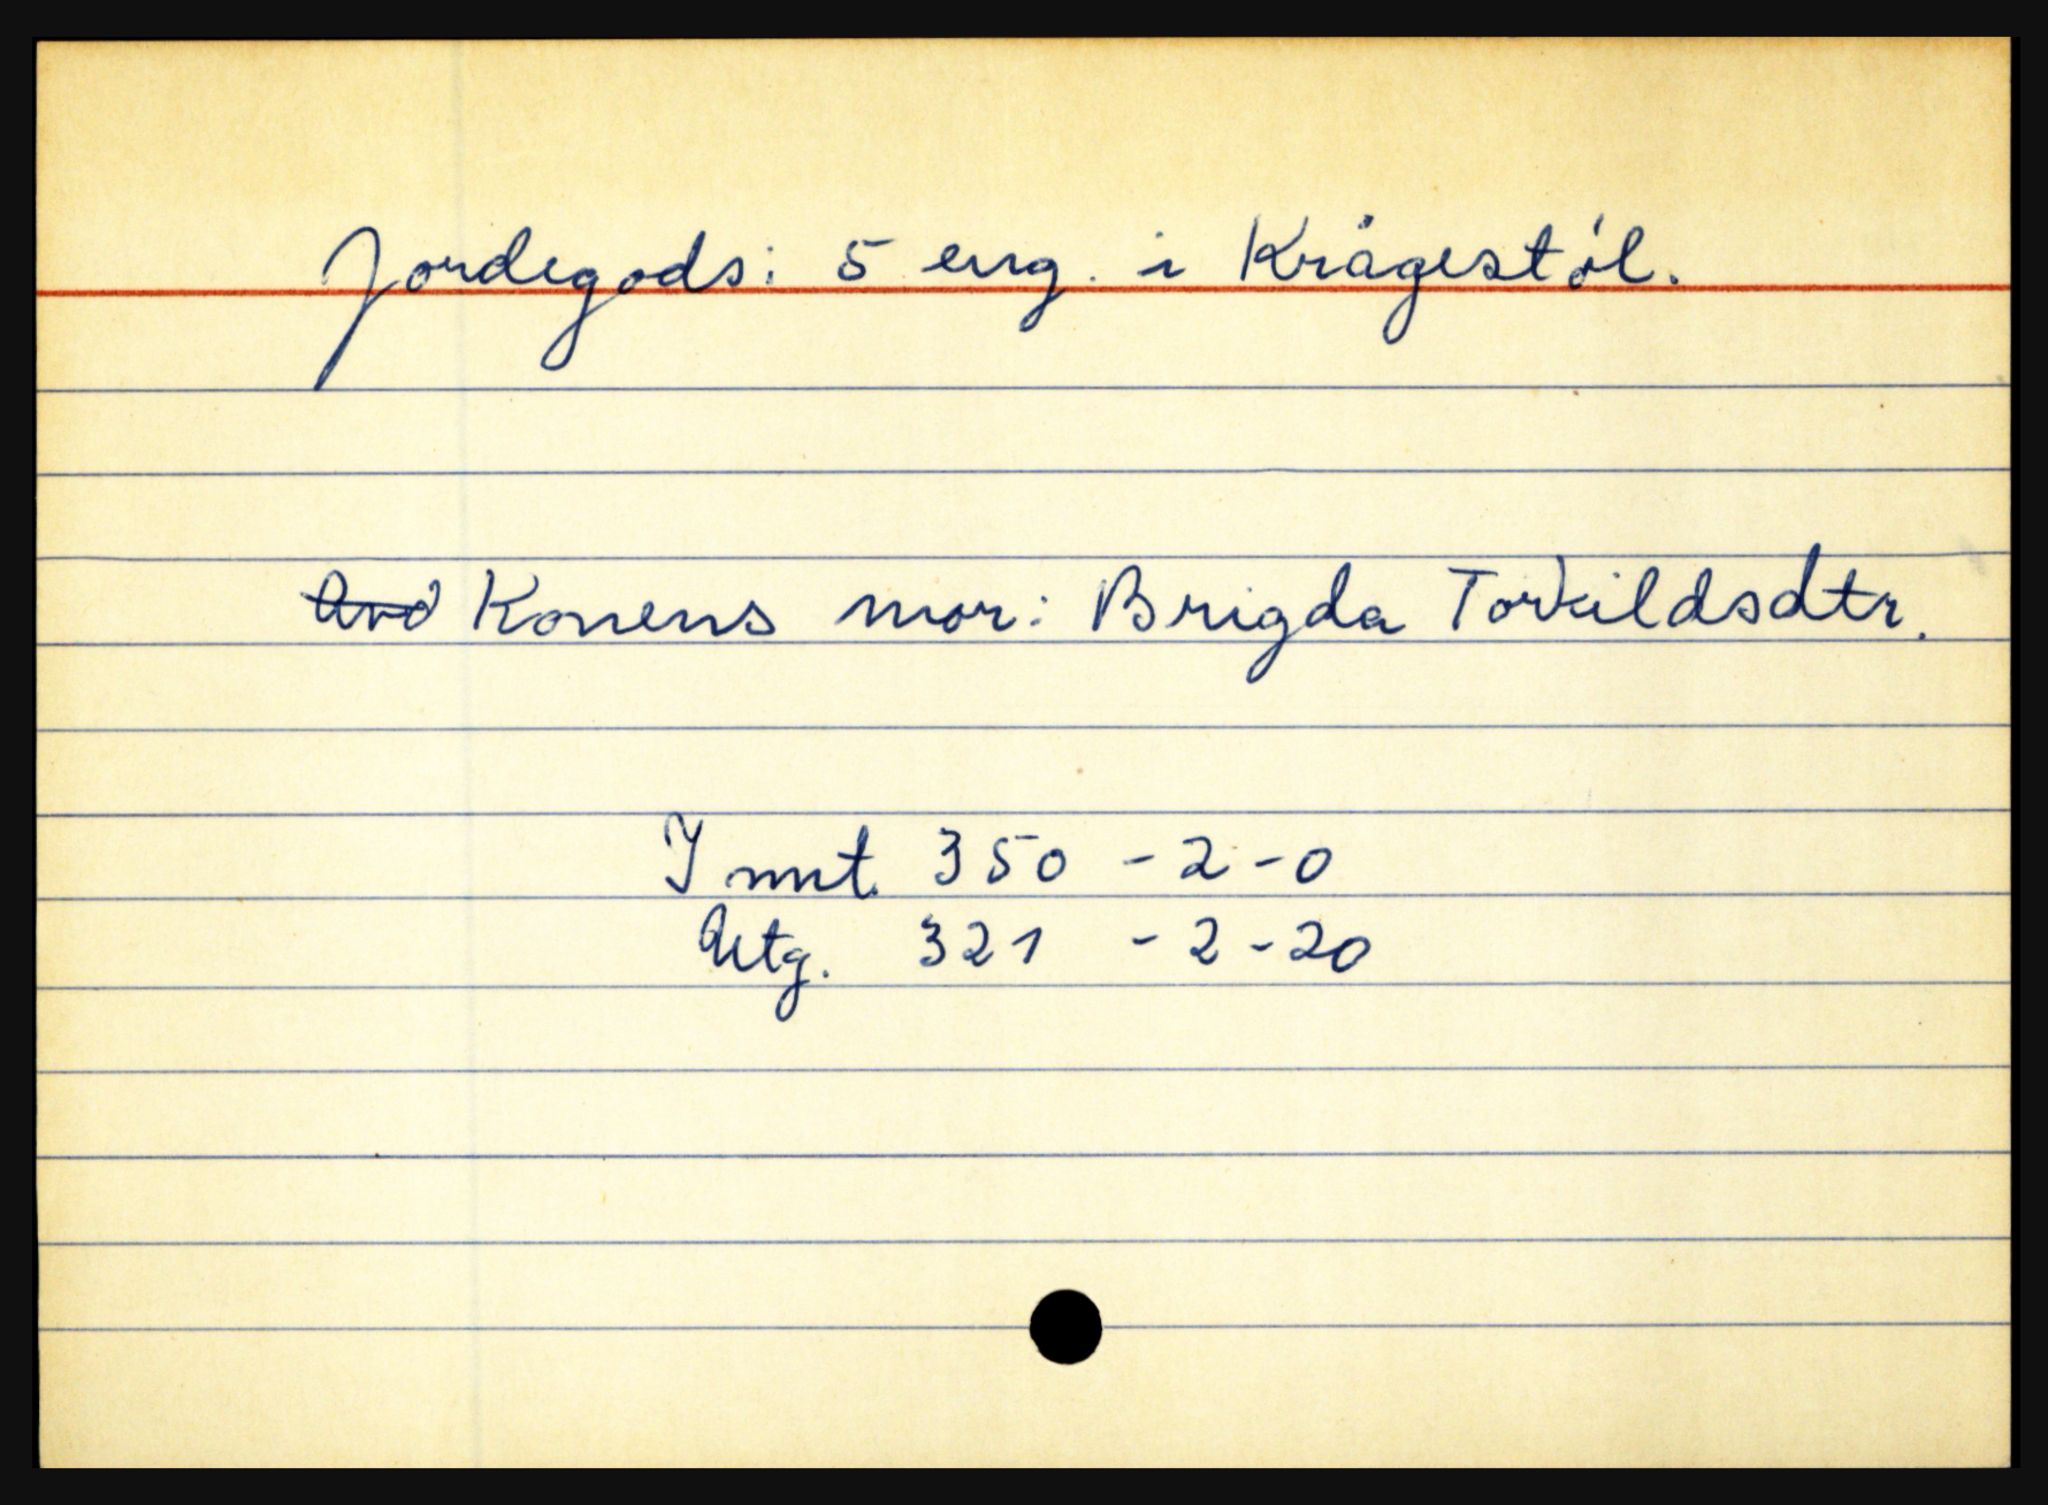 Jordegods: 5 eng. i Krågestøl.
Konens mor: Brigda Torkildsdtr.
Innt. 350 - 2 - 0
Utg. 321 - 2 - 20